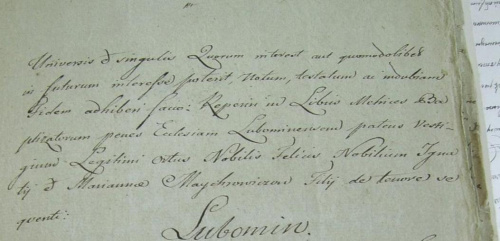 Universis & singulis Quorum interest aut quomodolibet
in futurum interesse poterit, Notum, testatum ac indubiam
Fidem adhiberi facio: Reperiri in Libris Metrices Ba
ptizatorum penes Eclesiam Lubominensem patens Vesti-
gium Legitimi ortus Nobilis Felicis Nobilium Igna
tij & Mariannæ Maychrowiczow Filij de tenore se
quenti:
Lubomin.